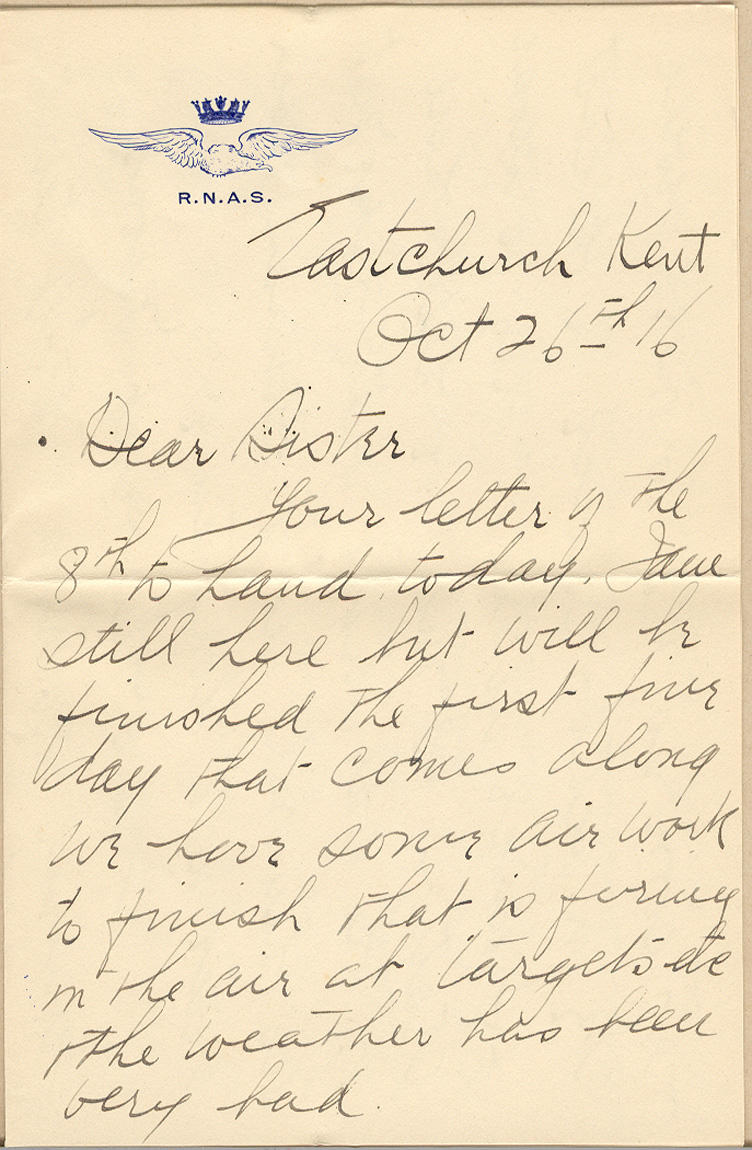 R.N.A.S.
Eastchurch Kent
Oct 26th 16
Dear Sister
Your letter of the
8th to hand today. I am
still here but will be
finished the first fine
day that comes along
we have some air work
to finish that is firing
in the air at targets etc
& the weather has been
very bad.